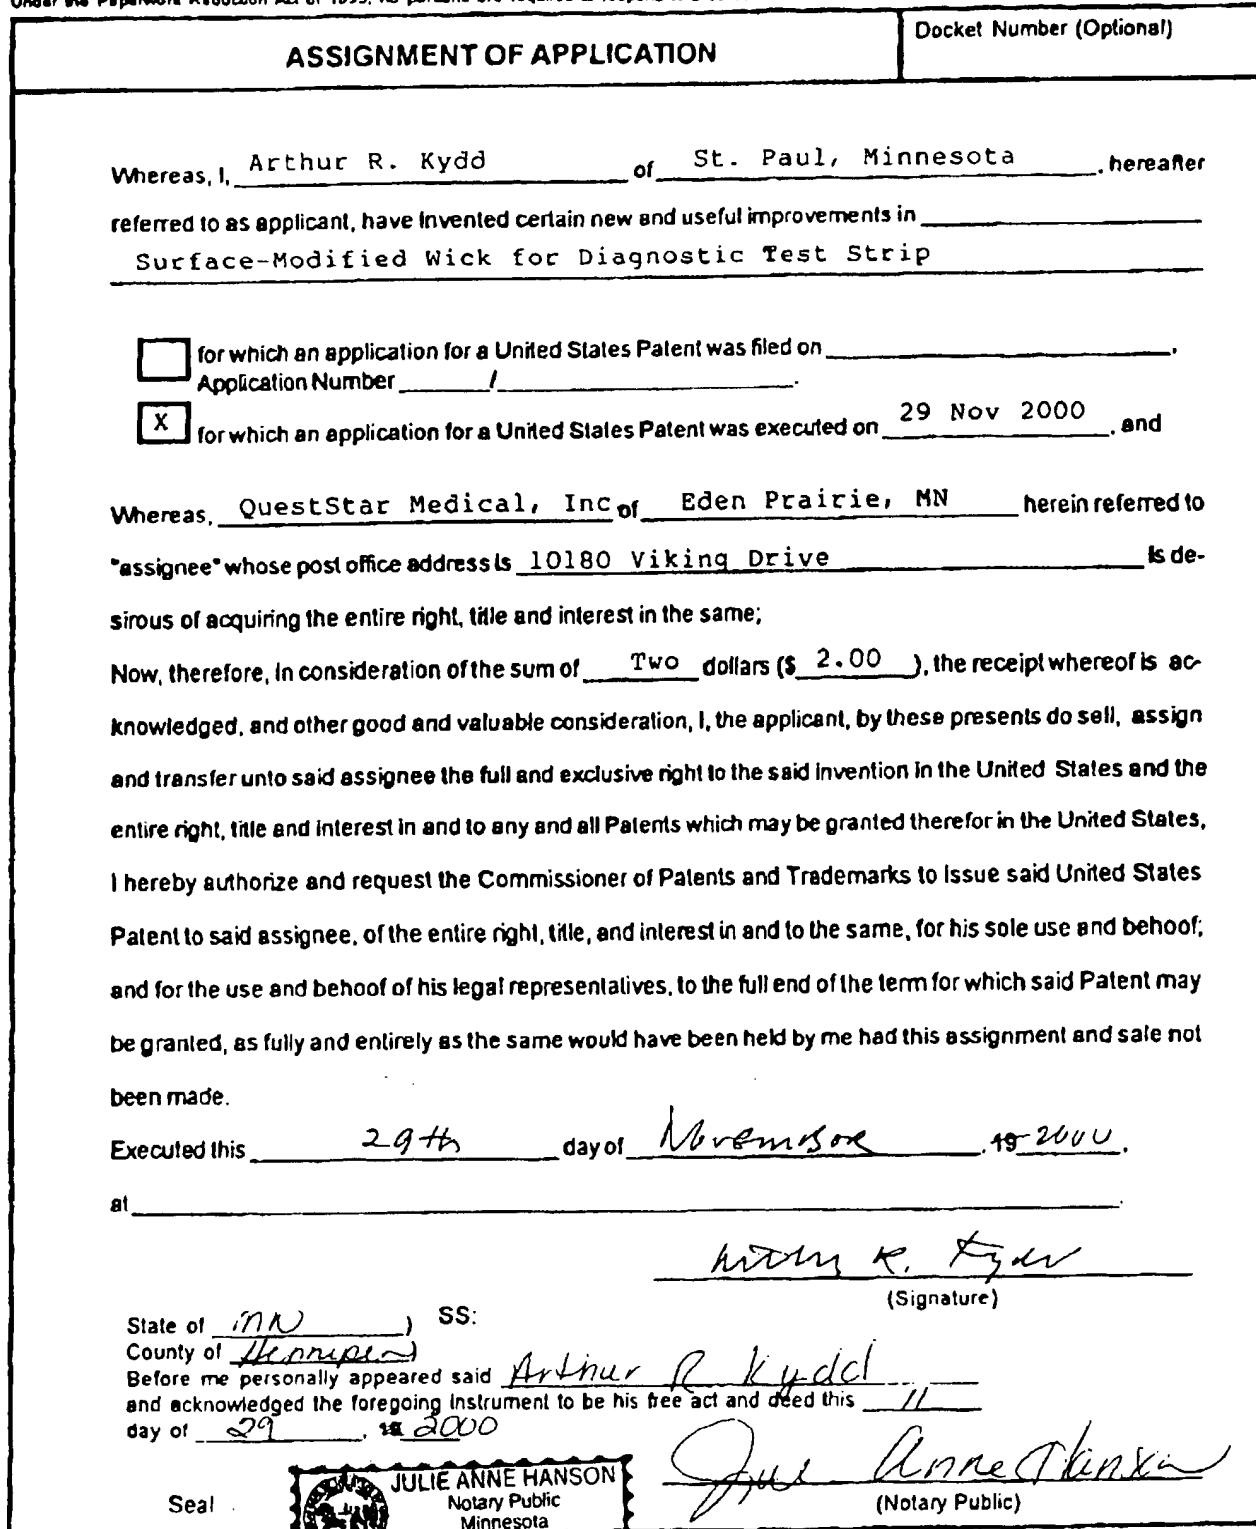 Under the Paperwork Reduction Act of 1995, no persons are required to respond to a
ASSIGNMENT OF APPLICATION
Docket Number (Optional)
Whereas, I, Arthur R. Kydd of St. Paul, Minnesota , hereafter
referred to as applicant, have invented certain new and useful improvements in
Surface-Modified Wick for Diagnostic Test Strip
for which an application for a United States Patent was filed on ,
Application Number / .
X for which an application for a United States Patent was executed on 29 Nov 2000 , and
Whereas, QuestStar Medical, Inc of Eden Prairie, MN herein referred to
"assignee" whose post office address is 10180 Viking Drive is de-
sirous of acquiring the entire right, title and interest in the same;
Now, therefore, in consideration of the sum of Two dollars ($ 2.00 ), the receipt whereof is ac-
knowledged, and other good and valuable consideration, I, the applicant, by these presents do sell, assign
and transfer unto said assignee the full and exclusive right to the said invention in the United States and the
entire right, title and interest in and to any and all Patents which may be granted therefor in the United States,
I hereby authorize and request the Commissioner of Patents and Trademarks to issue said United States
Patent to said assignee, of the entire right, title, and interest in and to the same, for his sole use and behoof;
and for the use and behoof of his legal representatives, to the full end of the term for which said Patent may
be granted, as fully and entirely as the same would have been held by me had this assignment and sale not
been made.
Executed this 29th day of November , 19 2000 .
at .
Arthur R. Kydd
(Signature)
State of MN ) SS:
County of Hennepin )
Before me personally appeared said Arthur R Kydd
and acknowledged the foregoing instrument to be his free act and deed this 11
day of 29 , 19 2000
Julie Anne Hanson
Seal
JULIE ANNE HANSON
Notary Public
Minnesota
(Notary Public)